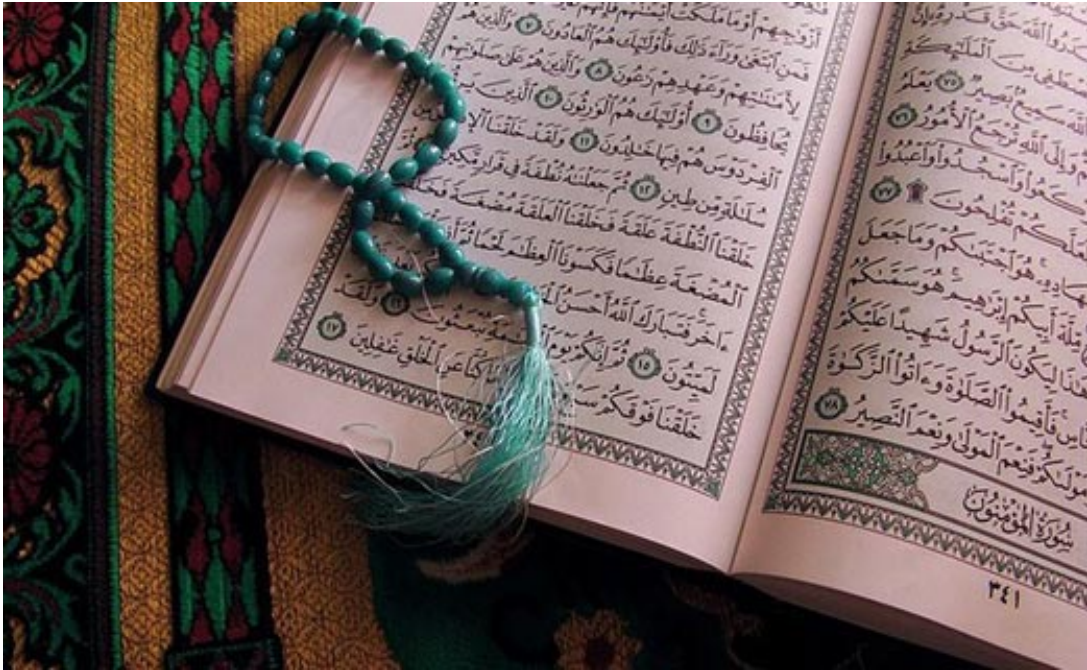 ٱللَّهَ حَقَّ قَدْرِهِۦٓ إِنَّ
يَصْطَفِى مِنَ ٱلْمَلَٰٓئِكَةِ
سَمِيعٌۢ بَصِيرٌ ٧٥ يَعْلَمُ
وَإِلَى ٱللَّهِ تُرْجَعُ ٱلْأُمُورُ ٧٦
وَٱسْجُدُوا۟ وَٱعْبُدُوا۟
تُفْلِحُونَ ۩ ٧٧
هُوَ ٱجْتَبَىٰكُمْ وَمَا جَعَلَ
مِّلَّةَ أَبِيكُمْ إِبْرَٰهِيمَ هُوَ سَمَّىٰكُمُ
لِيَكُونَ ٱلرَّسُولُ شَهِيدًا عَلَيْكُمْ
فَأَقِيمُوا۟ ٱلصَّلَوٰةَ وَءَاتُوا۟ ٱلزَّكَوٰةَ
فَنِعْمَ ٱلْمَوْلَىٰ وَنِعْمَ ٱلنَّصِيرُ ٧٨
سُورَةُ ٱلْمُؤْمِنُونَ
٣٤١
أَزْوَٰجِهِمْ أَوْ مَا مَلَكَتْ أَيْمَٰنُهُمْ فَإِنَّهُمْ
فَمَنِ ٱبْتَغَىٰ وَرَآءَ ذَٰلِكَ فَأُو۟لَٰٓئِكَ هُمُ ٱلْعَادُونَ ٧ وَٱلَّذِينَ هُمْ
لِأَمَٰنَٰتِهِمْ وَعَهْدِهِمْ رَٰعُونَ ٨ وَٱلَّذِينَ هُمْ عَلَىٰ صَلَوَٰتِهِمْ
يُحَافِظُونَ ٩ أُو۟لَٰٓئِكَ هُمُ ٱلْوَٰرِثُونَ ١٠ ٱلَّذِينَ
ٱلْفِرْدَوْسَ هُمْ فِيهَا خَٰلِدُونَ ١١ وَلَقَدْ خَلَقْنَا
سُلَٰلَةٍ مِّن طِينٍ ١٢ ثُمَّ جَعَلْنَٰهُ نُطْفَةً فِى قَرَارٍ مَّكِينٍ
خَلَقْنَا ٱلنُّطْفَةَ عَلَقَةً فَخَلَقْنَا ٱلْعَلَقَةَ مُضْغَةً
ٱلْمُضْغَةَ عِظَٰمًا فَكَسَوْنَا ٱلْعِظَٰمَ لَحْمًا ثُمَّ
ءَاخَرَ فَتَبَارَكَ ٱللَّهُ أَحْسَنُ
لَمَيِّتُونَ ١٥ ثُمَّ إِنَّكُمْ يَوْمَ تُبْعَثُونَ ١٦ وَلَقَدْ
خَلَقْنَا فَوْقَكُمْ كُنَّا عَنِ ٱلْخَلْقِ غَٰفِلِينَ ١٧